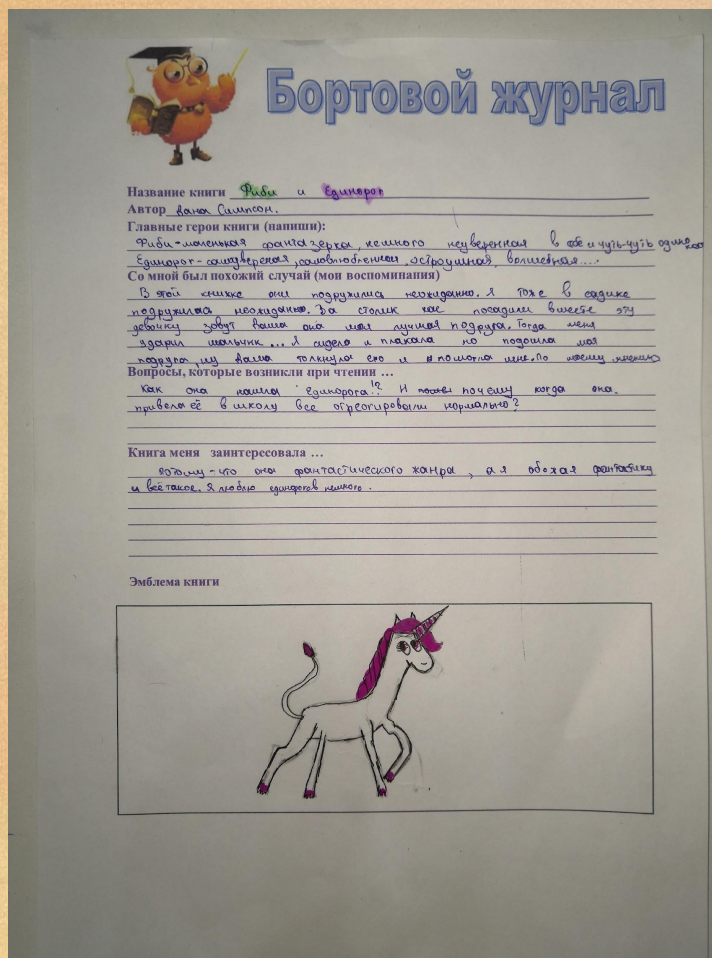 Бортовой журнал
Название книги Фиби и Единорог
Автор Дана Симпсон.
Главные герои книги (напиши):
Фиби-маленькая фантазерка, немного неуверенная в себе и чуть-чуть одинокая
Единорог-самоуверенная, самовлюбленная, остроумная, волшебная....
Со мной был похожий случай (мои воспоминания)
В этой книжке они подружились неожиданно. Я тоже в садике
подружилась неожиданно. За столик нас посадили вместе эту
девочку зовут Даша она моя лучшая подруга. Тогда меня
ударил мальчик ... Я сидела и плакала но подошла моя
подруга, Даша толкнула его и помогла мне. По моему мнению
Вопросы, которые возникли при чтении ...
Как она нашла единорога!? И почему когда она
привела её в школу все отреогировали нормально?
Книга меня заинтересовала ...
Потому-что она фантастического жанра, а я обожая фантастику
и всё такое. Я люблю единорогов немного.
Эмблема книги